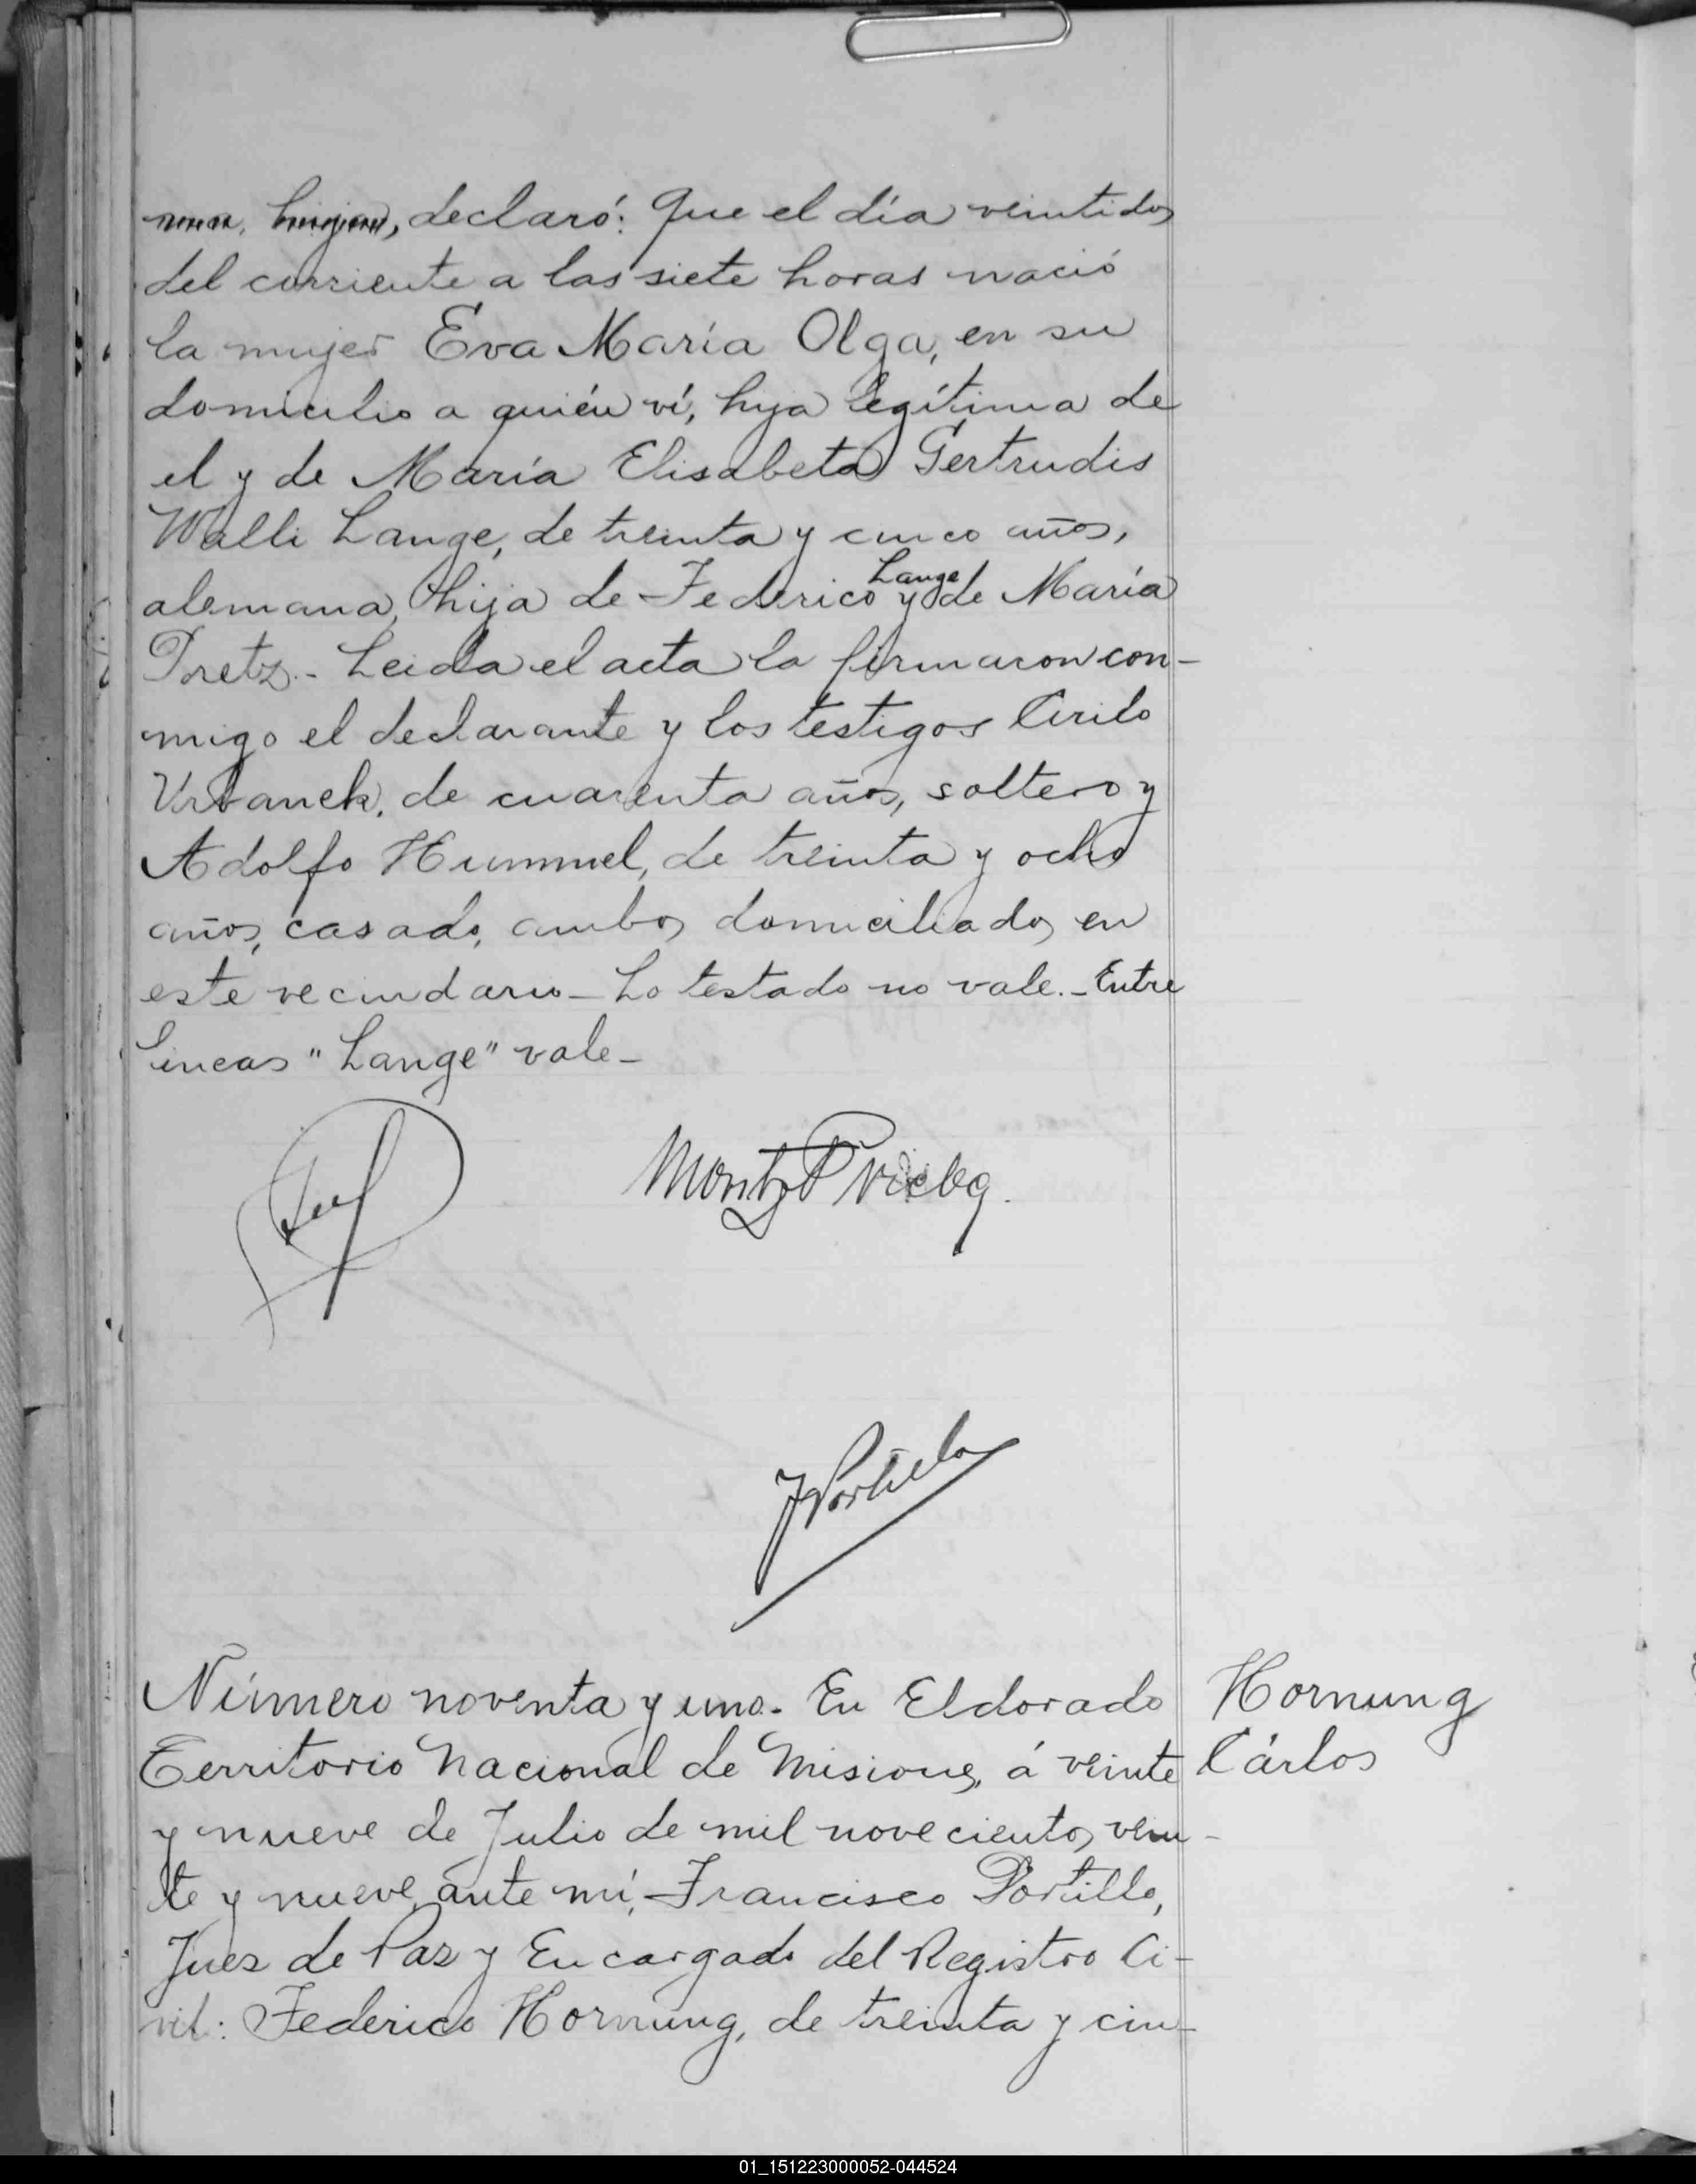 declaró: Que el día veintidos
del corriente a las siete horas nació
la mujer Eva María Olga, en su
domicilio a quién ví, hija legítima de
el y de María Elisabeta Gertrudis
Walli Lange, de treinta y cinco años,
alemana, hija de Federico Lange y de María
Pretz.- Leida el acta la firmaron con-
migo el declarante y los testigos Cirilo
Urbanek, de cuarenta años, soltero y
Adolfo Hummel, de treinta y ocho
años, casado, ambos domiciliados en
este vecindario- Lo testado no vale.- Entre
lineas "Lange" vale-
Moritz
Número noventa y uno.- En Eldorado
Territorio Nacional de Misiones, á veinte
y nueve de Julio de mil novecientos vein-
te y nueve, ante mí, Francisco Portillo,
Juez de Paz y Encargado del Registro Ci-
vil: Federico Hornung, de treinta y cin-
Hornung
Cárlos
01_151223000052-044524